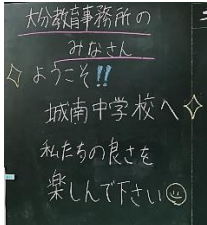 大分教育事務所の
みなさん
ようこそ!!
城南中学校へ
私たちの良さを
楽しんで下さい